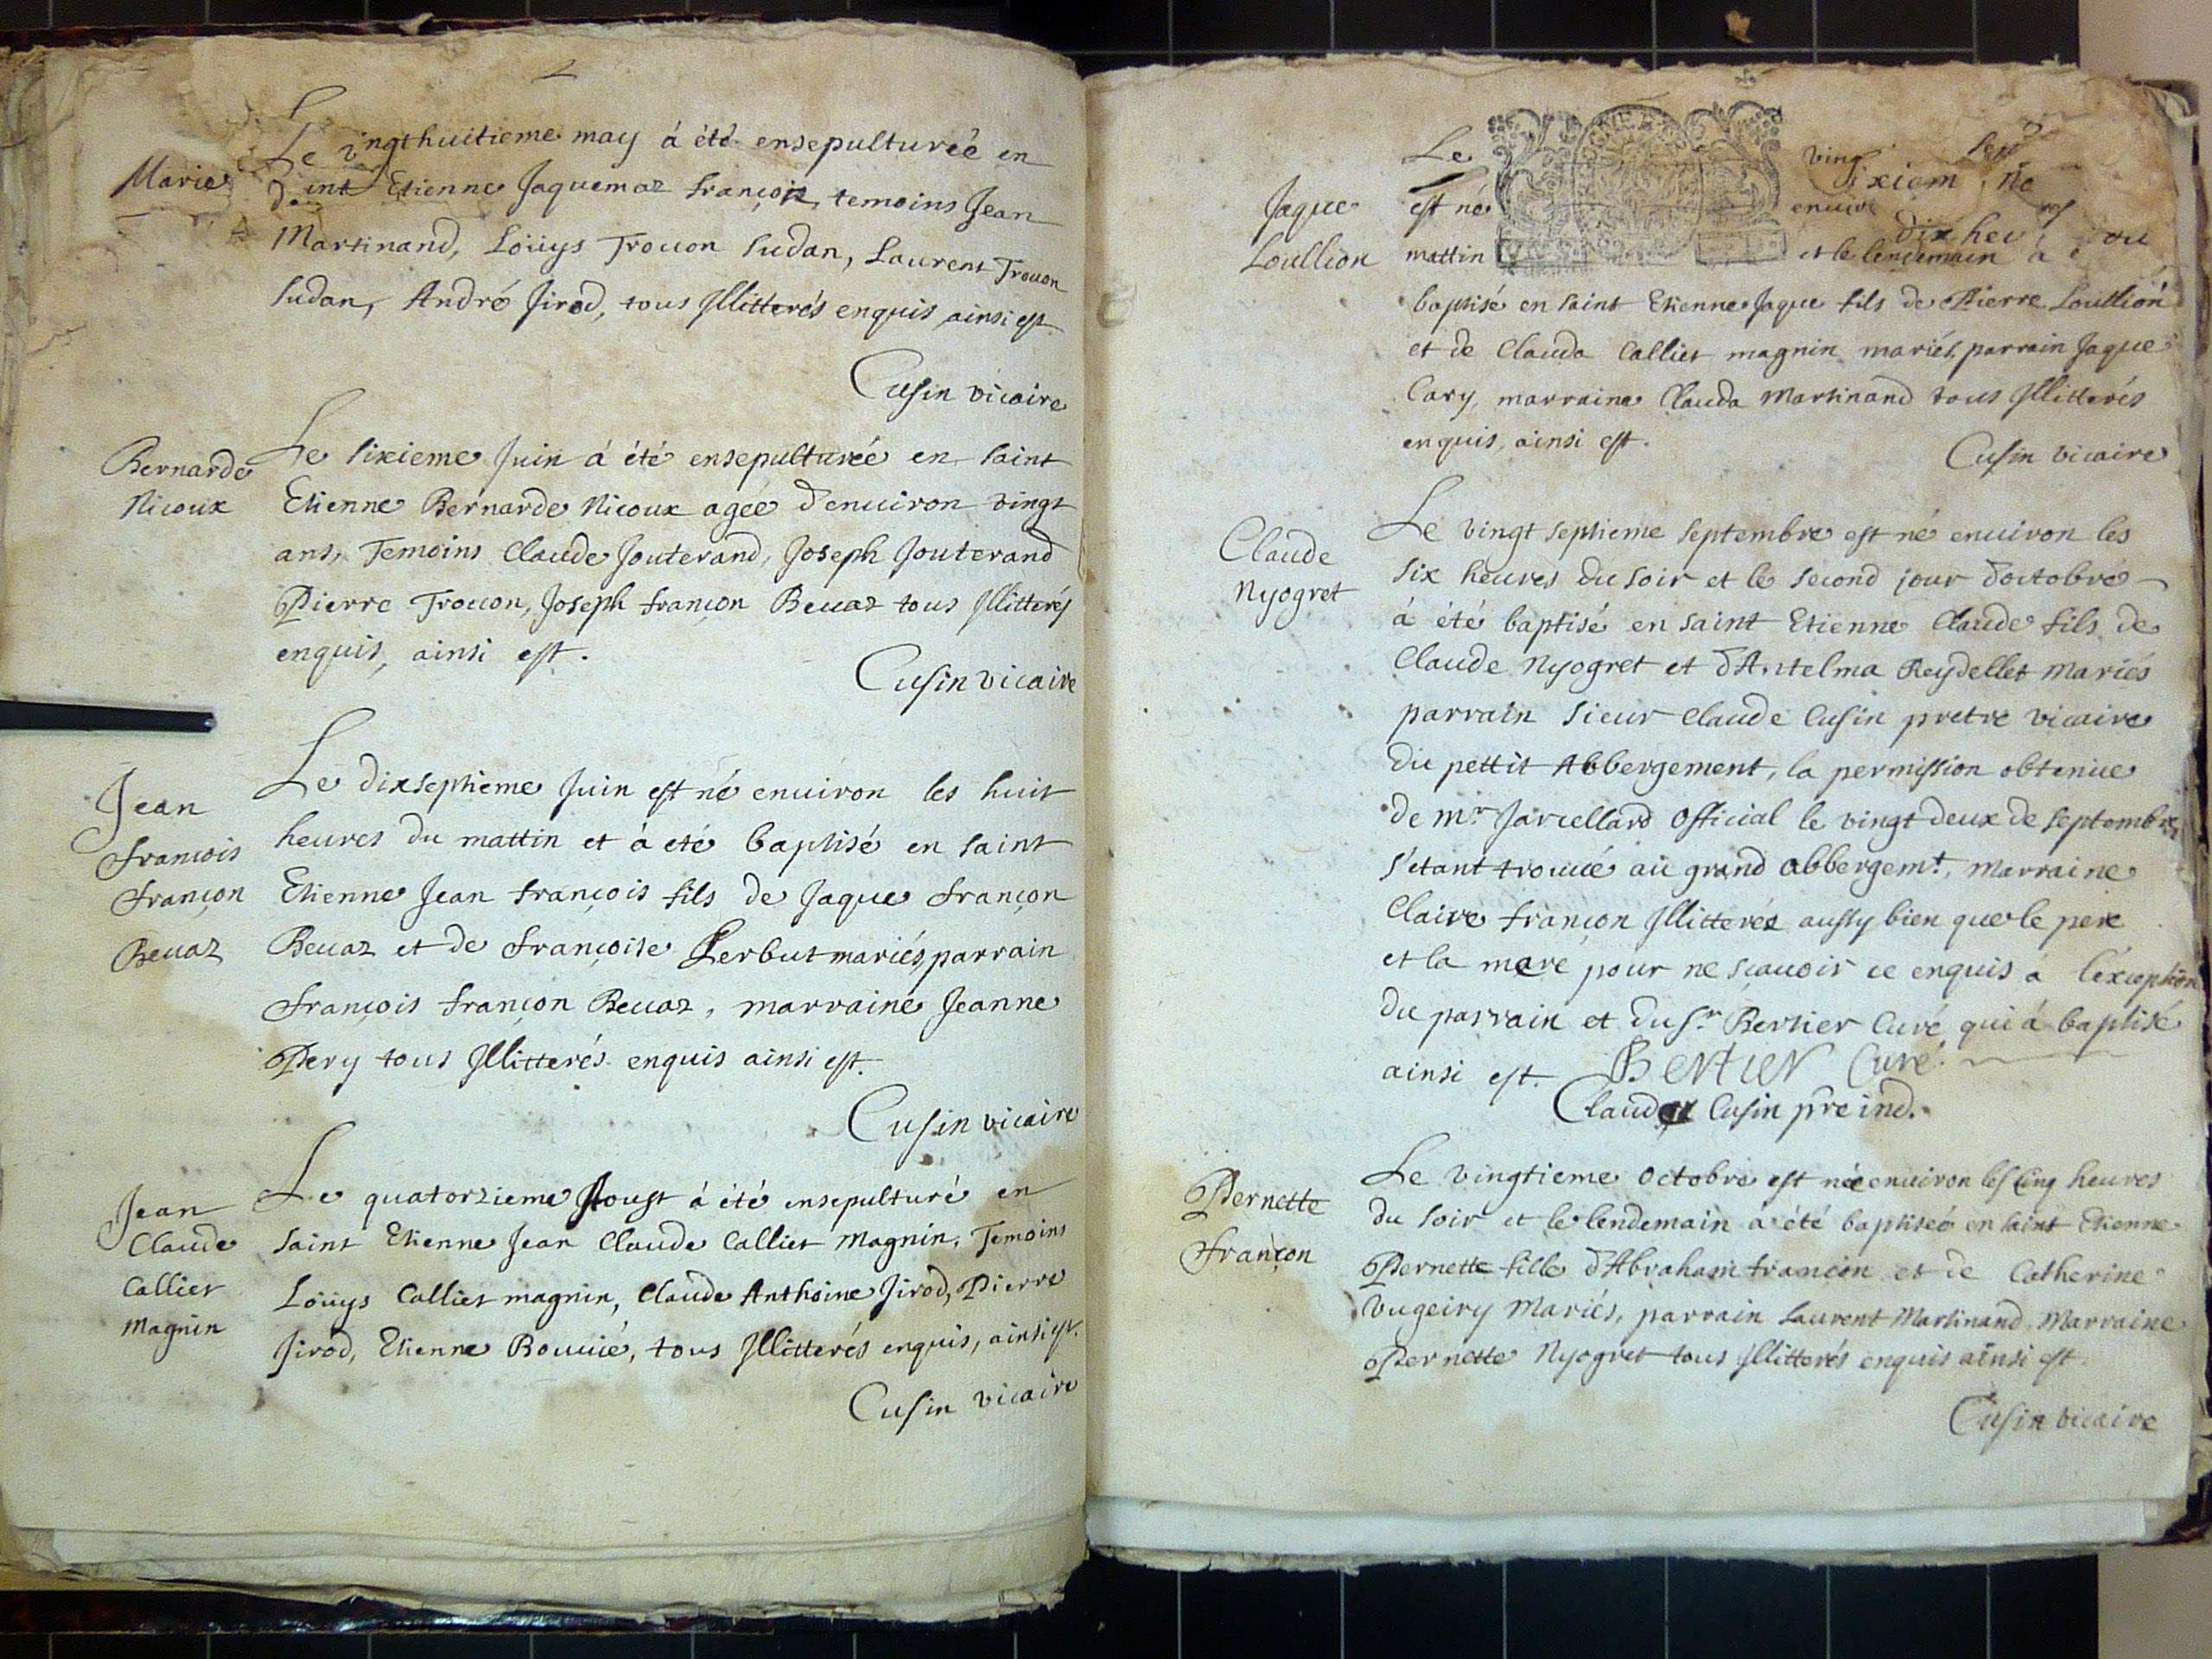 Marie
Le vingthuitieme may á été ensepulturéé en
Etienne Jaquemaz françois, temoins Jean
Martinand, Loüys Trouon Sudan, Laurent Trouon
Sudan, André Jirod, tous Jllitterés enquis ainsi est.
Cusin vicaire
Bernarde
Nicoux
Le sixieme Juin á été ensepulturéé en saint
Etienne Bernarde Nicoux agéé d'enuiron vingt
ans, Temoins Claude Jouterand, Joseph Jouterand
Pierre Trouon, Joseph françon Beuaz tous Jllitterés
enquis, ainsi est.
Cusin vicaire
Jean
francois
françon
Beuaz
Le dixseptieme Juin est né enuiron les huit
heures du mattin et á eté baptisé en saint
Etienne Jean françois fils de Jaque françon
Beuaz et de françoise Perbut mariés, parrain
françois françon Beuaz, marraine Jeanne
Pery tous Jllitterés enquis ainsi est.
Cusin vicaire
Jean
Claude
Callier
Magnin
Le quatorzieme Aoust á été ensepulturé en
saint Etienne Jean Claude Callier Magnin, Temoins
Loüys Callier magnin, Claude Anthoine Jirod, Pierre
Jirod, Etienne Bouuié, tous Jllitterés enquis, ainsi est.
Cusin vicaire
Jaque
Loullion
Le
est né enuiro dix heu
mattin et le lendemain á
baptisé en saint Etienne Jaque fils de Pierre Loullion
et de Clauda Callier magnin mariés, parrain Jaque
Cary, marraine Clauda Martinand tous Jllitterés
enquis, ainsi est.
Cusin vicaire
Claude
Nyogret
Le vingt septieme septembre est né enuiron les
six heures du soir et le second jour d'octobre
á été baptisé en saint Etienne Claude fils de
Claude Nyogret et d'Antelma Reydellet Mariés
parrain sieur Claude Cusin pretre vicaire
du pettit Abbergement, la permission obtenüe
de mr Jarcellard Official le vingt deux de septembre,
s'etant trouué au grand abbergemt, marraine
Claire françon Jllitterée aussy bien que le pere
et la mere pour ne sçauoir ce enquis a l'exception
du parrain et du sr Bertier Curé qui á baptisé
ainsi est. Bertier Curé
Claude Cusin pre ind.
Pernette
françon
Le vingtieme Octobre est née enuiron les cinq heures
du soir et le lendemain á été baptiséé en saint Etienne
Pernette fille d'Abraham françon et de Catherine
Vugeiry Mariés, parrain Laurent Martinand, Marraine
Pernette Nyogret tous Jllitterés enquis ainsi est.
Cusin vicaire